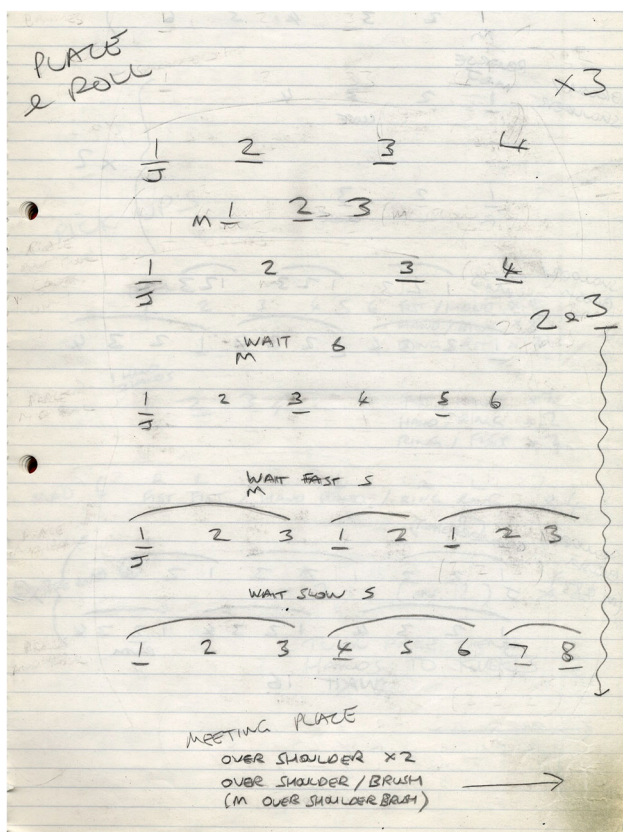 PLACE
& ROLL
×3
1 2 3 4
J
M 1 2 3
1 2 3 4
J
2 & 3
WAIT 6
M
1 2 3 4 5 6
J
WAIT FAST 5
M
1 2 3 1 2 1 2 3
J
WAIT SLOW 5
1 2 3 4 5 6 7 8
MEETING PLACE
OVER SHOULDER ×2
OVER SHOULDER / BRUSH
(M OVER SHOULDER BRUSH)